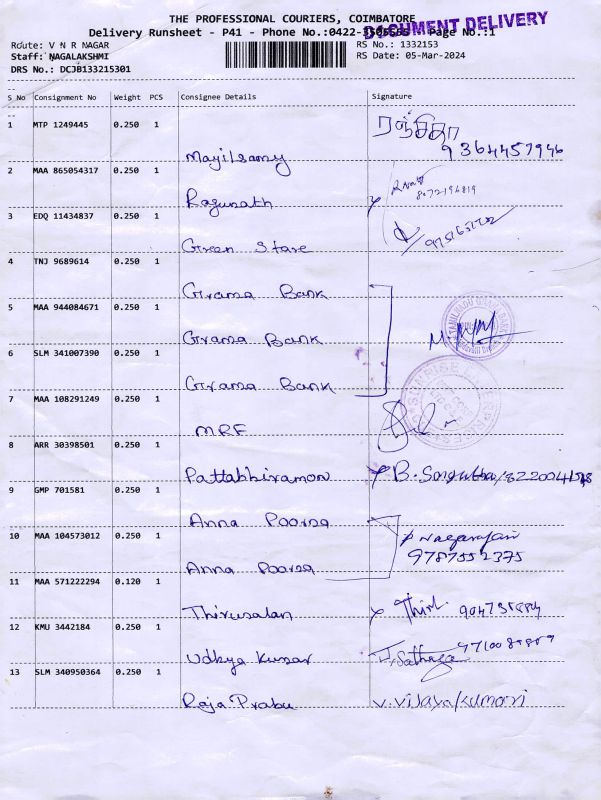 THE PROFESSIONAL COURIERS, COIMBATORE
DOCUMENT DELIVERY
Delivery Runsheet - P41 - Phone No.:0422- Page No.:1
Route: V N R NAGAR
RS No.: 1332153
Staff: NAGALAKSHMI
RS Date: 05-Mar-2024
DRS No.: DCJB133215301
S No Consignment No Weight PCS Consignee Details Signature
1 MTP 1249445 0.250 1
ரஞ்சிதா
9364457946
Mayilsamy
2 MAA 865054317 0.250 1
8072194819
Ragunath
3 EDQ 11434837 0.250 1
Green Stare
4 TNJ 9689614 0.250 1
Grama Bank
5 MAA 944084671 0.250 1
Grama Bank
6 SLM 341007390 0.250 1
Grama Bank
7 MAA 108291249 0.250 1
MRF
8 ARR 30398501 0.250 1
Pattabhiraman B.
9 GMP 701581 0.250 1
Anna Poorna
10 MAA 104573012 0.250 1
P Nagarajan
9787552375
Anna Poorna
11 MAA 571222294 0.120 1
Thirusalan
12 KMU 3442184 0.250 1
Udhya Kumar
13 SLM 340950364 0.250 1
Raja Prabu V. Vijayakumari